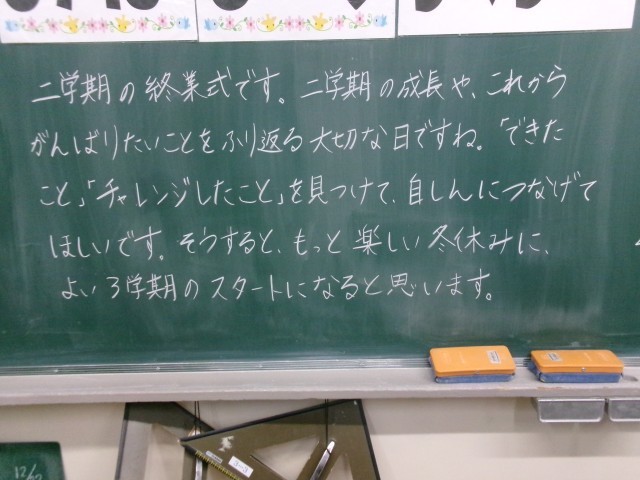 二学期の終業式です。二学期の成長や、これから
がんばりたいことをふり返る大切な日ですね。「できた
こと」「チャレンジしたこと」を見つけて、自しんにつなげて
ほしいです。そうすると、もっと楽しい冬休みに、
よい3学期のスタートになると思います。